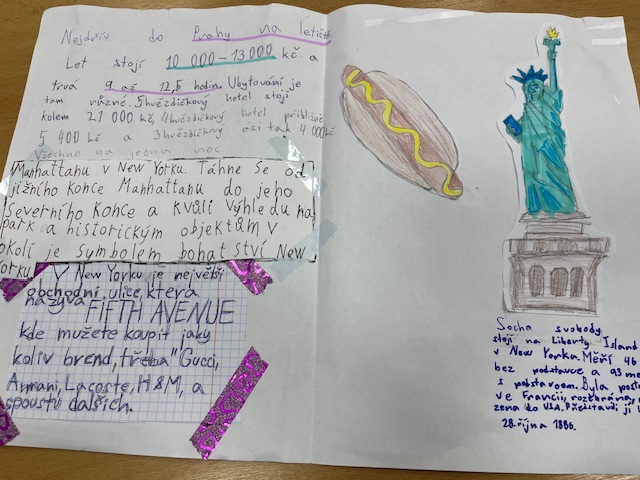 Nejdřív do Prahy na letiště
Let stojí 10 000 – 13 000 kč. a
trvá 9 až 12,5 hodin. Ubytování je
tam různé. 5hvězdičkový hotel stojí
kolem 21 000 kč, 4hvězdičkový hotel přibližně
5 400 kč a 3hvězdičkový asi tak 4 000kč.
Všechno na jednu noc
Manhattanu v New Yorku. Táhne se od
jižního konce Manhattanu do jeho
severního konce a kvůli výhledu na
park a historickým objektům v
okolí je symbolem bohatství New
Yorku.
V New Yorku je největší
obchodní ulice, která
nazýva FIFTH AVENUE
kde mužete koupit jaky
koliv brend, třeba "Gucci,
Armani, Lacoste, H&M, a
spoustů dalších.
Socha svobody
stojí na Liberty Island
v New Yorku. Měří 46
bez podstavce a 93 me
s podstavcem. Byla post
ve Francii, rozebrána,
zena do USA. Představili jí
28. října 1886.